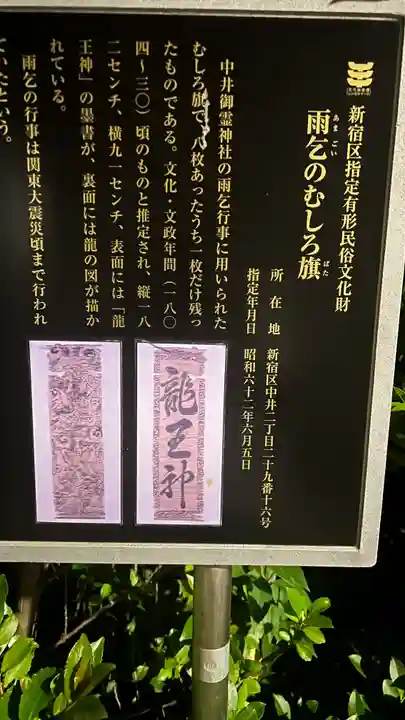 新宿区指定有形民俗文化財
雨乞のむしろ旗
あまごい
ばた
所在地 新宿区中井二丁目二十九番十六号
指定年月日 昭和六十二年六月五日
中井御霊神社の雨乞行事に用いられた
むしろ旗で、八枚あったうち一枚だけ残っ
たものである。文化・文政年間(一八〇
四〜三〇)頃のものと推定され、縦一八
二センチ、横九一センチ、表面には「龍
王神」の墨書が、裏面には龍の図が描か
れている。
雨乞の行事は関東大震災頃まで行われ
ていたという。
龍王神